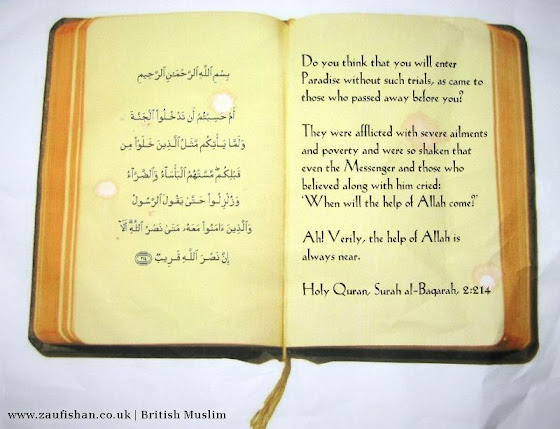 بِسْمِ ٱللَّهِ ٱلرَّحْمَٰنِ ٱلرَّحِيمِ
أَمْ حَسِبْتُمْ أَن تَدْخُلُوا۟ ٱلْجَنَّةَ
وَلَمَّا يَأْتِكُم مَّثَلُ ٱلَّذِينَ خَلَوْا۟ مِن
قَبْلِكُم ۖ مَّسَّتْهُمُ ٱلْبَأْسَآءُ وَٱلضَّرَّآءُ
وَزُلْزِلُوا۟ حَتَّىٰ يَقُولَ ٱلرَّسُولُ
وَٱلَّذِينَ ءَامَنُوا۟ مَعَهُۥ مَتَىٰ نَصْرُ ٱللَّهِ ۗ أَلَآ
إِنَّ نَصْرَ ٱللَّهِ قَرِيبٌ ﴿٢١٤﴾
Do you think that you will enter
Paradise without such trials, as came to
those who passed away before you?
They were afflicted with severe ailments
and poverty and were so shaken that
even the Messenger and those who
believed along with him cried:
'When will the help of Allah come?'
Ah! Verily, the help of Allah is
always near.
Holy Quran, Surah al-Baqarah, 2:214
www.zaufishan.co.uk | British Muslim